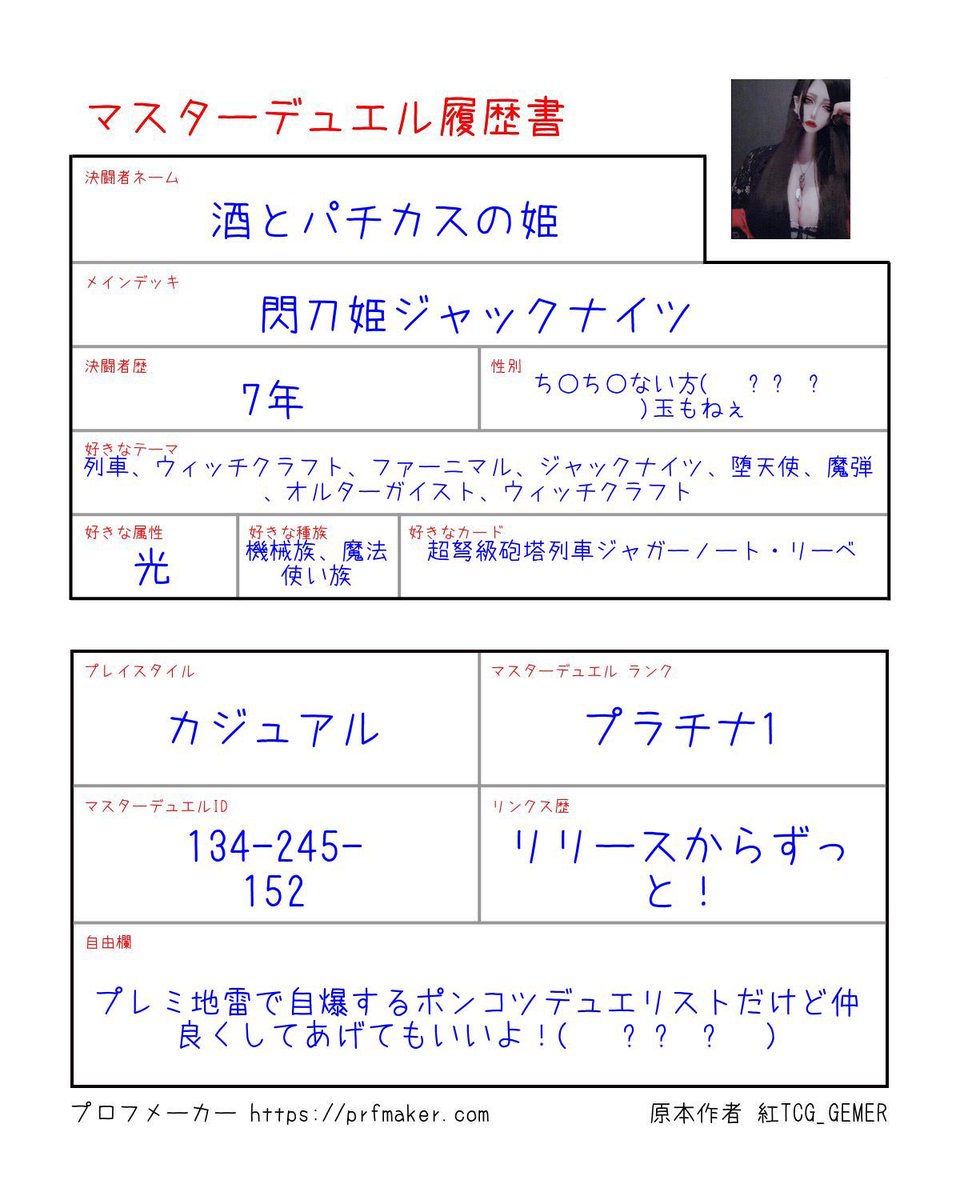 マスターデュエル履歴書
決闘者ネーム
酒とパチカスの姫
メインデッキ
閃刀姫ジャックナイツ
決闘者歴
7年
性別
ち○ち○ない方(　？？　？
)玉もねぇ
好きなテーマ
列車、ウィッチクラフト、ファーニマル、ジャックナイツ、堕天使、魔弾
、オルターガイスト、ウィッチクラフト
好きな属性
光
好きな種族
機械族、魔法
使い族
好きなカード
超弩級砲塔列車ジャガーノート・リーベ
プレイスタイル
カジュアル
マスターデュエル ランク
プラチナ1
マスターデュエルID
134-245-
152
リンクス歴
リリースからずっ
と！
自由欄
プレミ地雷で自爆するポンコツデュエリストだけど仲
良くしてあげてもいいよ！(　？？　？　)
プロフメーカー https://prfmaker.com
原本作者 紅TCG_GEMER